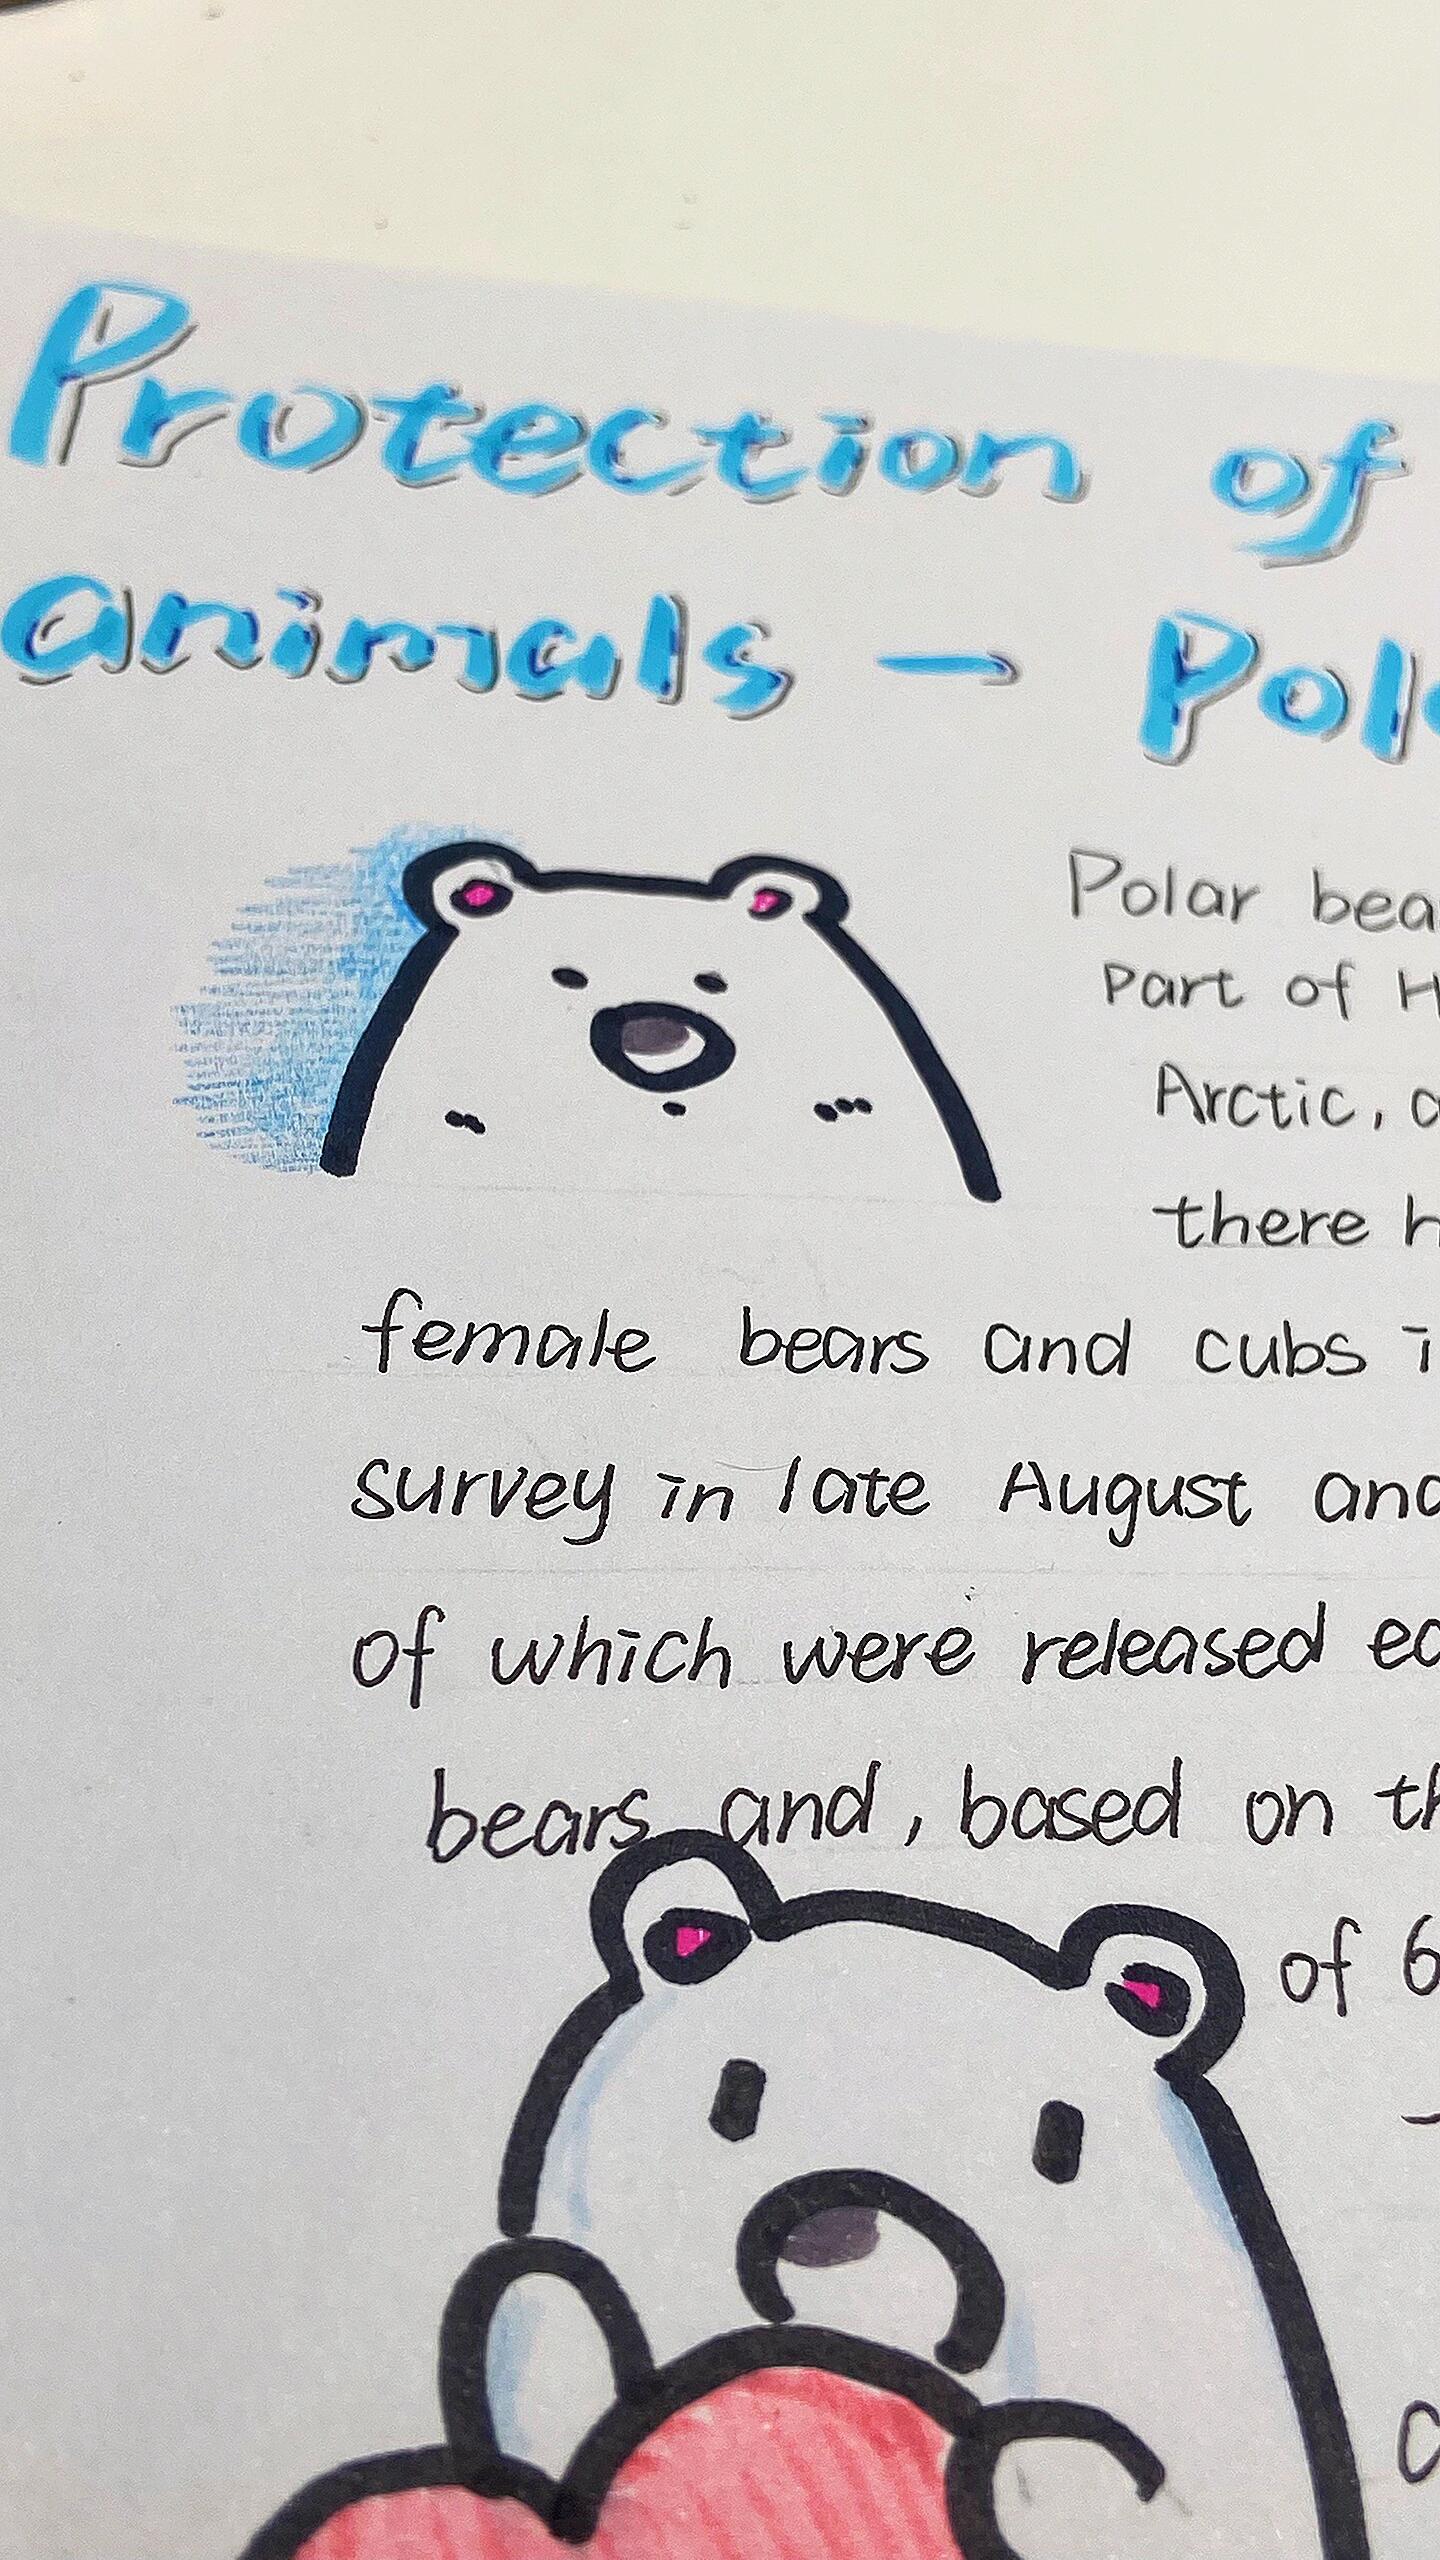 Protection of
animals - Pol
Polar bea
Part of H
Arctic,
there h
female bears and cubs i
survey in late August and
of which were released ea
bears and, based on th
of 6